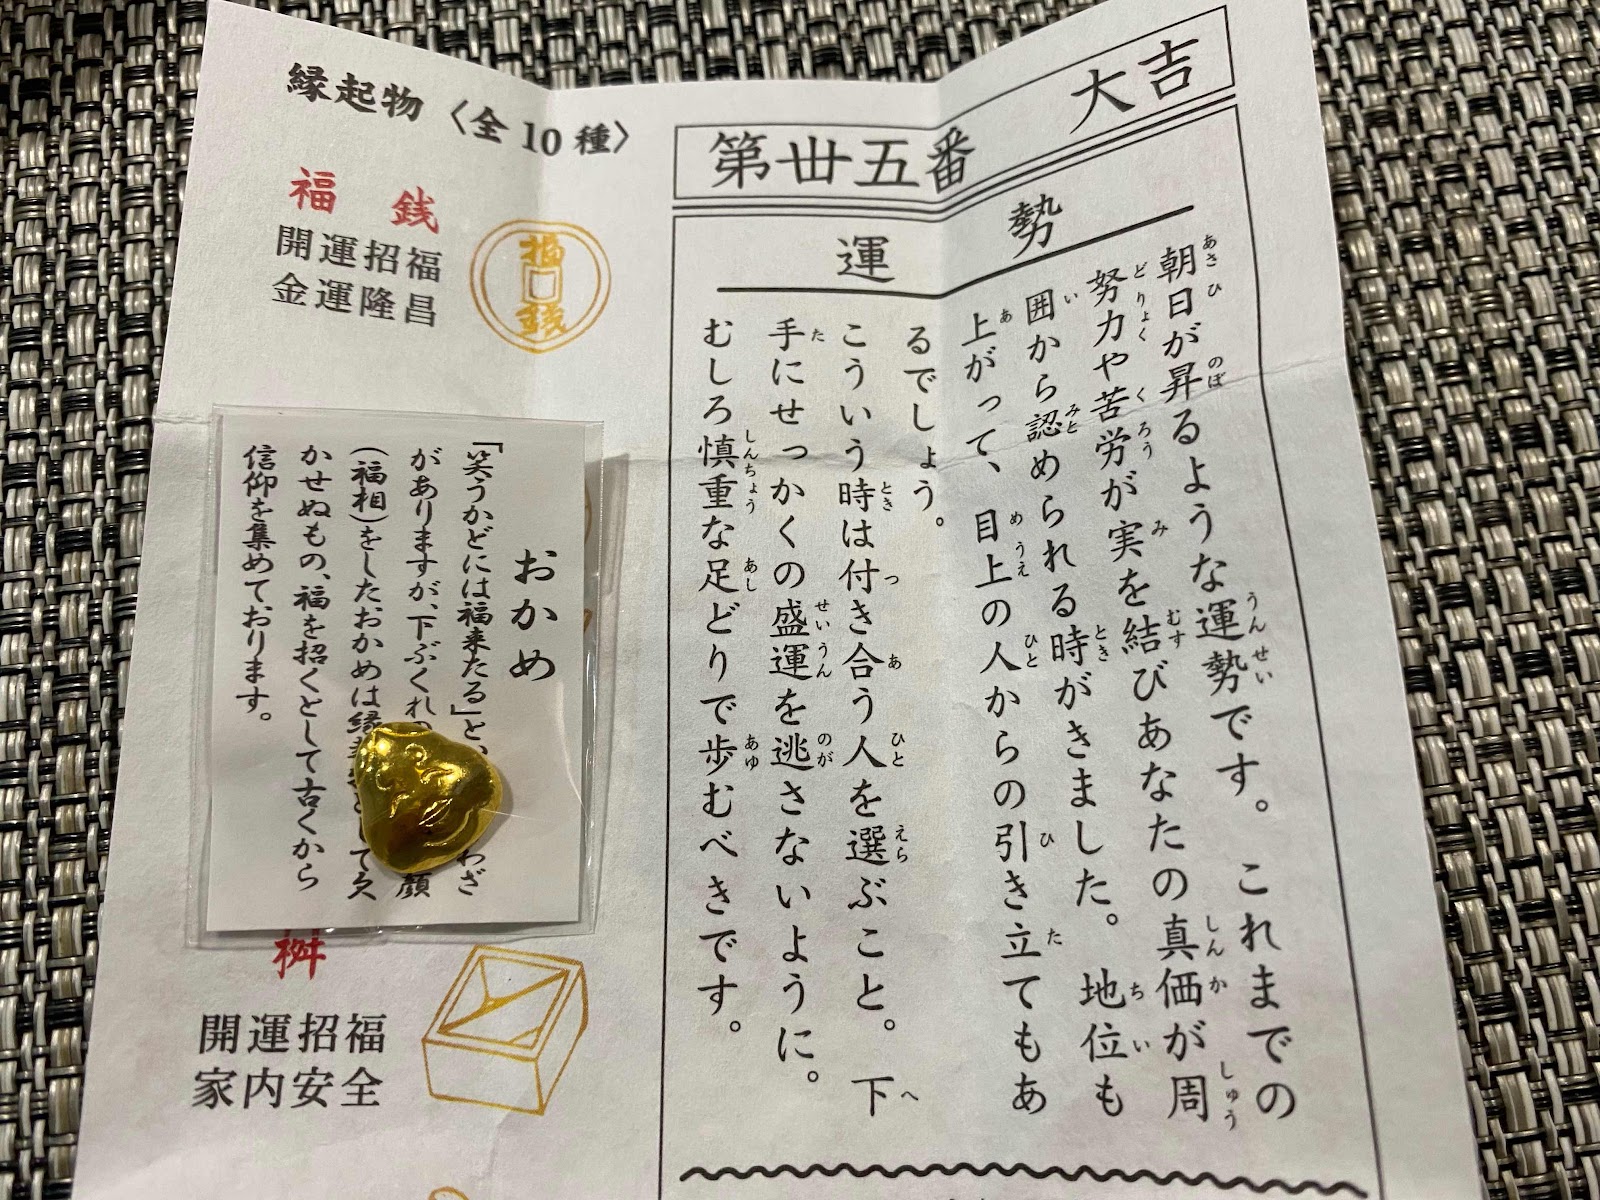 大吉
第丗五番
運勢
朝日が昇るような運勢です。これまでの
努力や苦労が実を結びあなたの真価が周
囲から認められる時がきました。地位も
上がって、目上の人からの引き立てもあ
るでしょう。
こういう時は付き合う人を選ぶこと。下
手にせっかくの盛運を逃さないように。
むしろ慎重な足どりで歩むべきです。
縁起物〈全10種〉
福銭
開運招福
金運隆昌
福銭
おかめ
「笑うかどには福来たる」と、わざ
がありますが、下ぶくれ 顔
(福相)をしたおかめは縁 として欠
かせぬもの、福を招くとして古くから
信仰を集めております。
桝
開運招福
家内安全